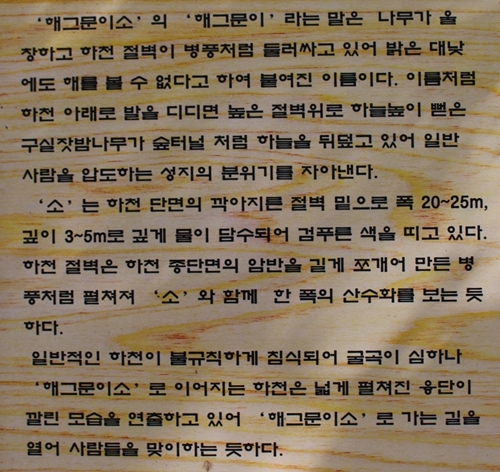 '해그문이소' 의 '해그문이' 라는 말은 나무가 울
창하고 하천 절벽이 병풍처럼 둘러싸고 있어 밝은 대낮
에도 해를 볼 수 없다고 하여 붙여진 이름이다. 이름처럼
하천 아래로 발을 디디면 높은 절벽위로 하늘높이 뻗은
구실잣밤나무가 숲터널 처럼 하늘을 뒤덮고 있어 일반
사람을 압도하는 성지의 분위기를 자아낸다.
'소' 는 하천 단면의 깍아지른 절벽 밑으로 폭 20~25m,
깊이 3~5m로 깊게 물이 담수되어 검푸른 색을 띠고 있다.
하천 절벽은 하천 종단면의 암반을 길게 쪼개어 만든 병
풍처럼 펼쳐져 '소' 와 함께 한 폭의 산수화를 보는 듯
하다.
일반적인 하천이 불규칙하게 침식되어 굴곡이 심하나
'해그문이소' 로 이어지는 하천은 넓게 펼쳐진 융단이
깔린 모습을 연출하고 있어 '해그문이소' 로 가는 길을
열어 사람들을 맞이하는 듯하다.